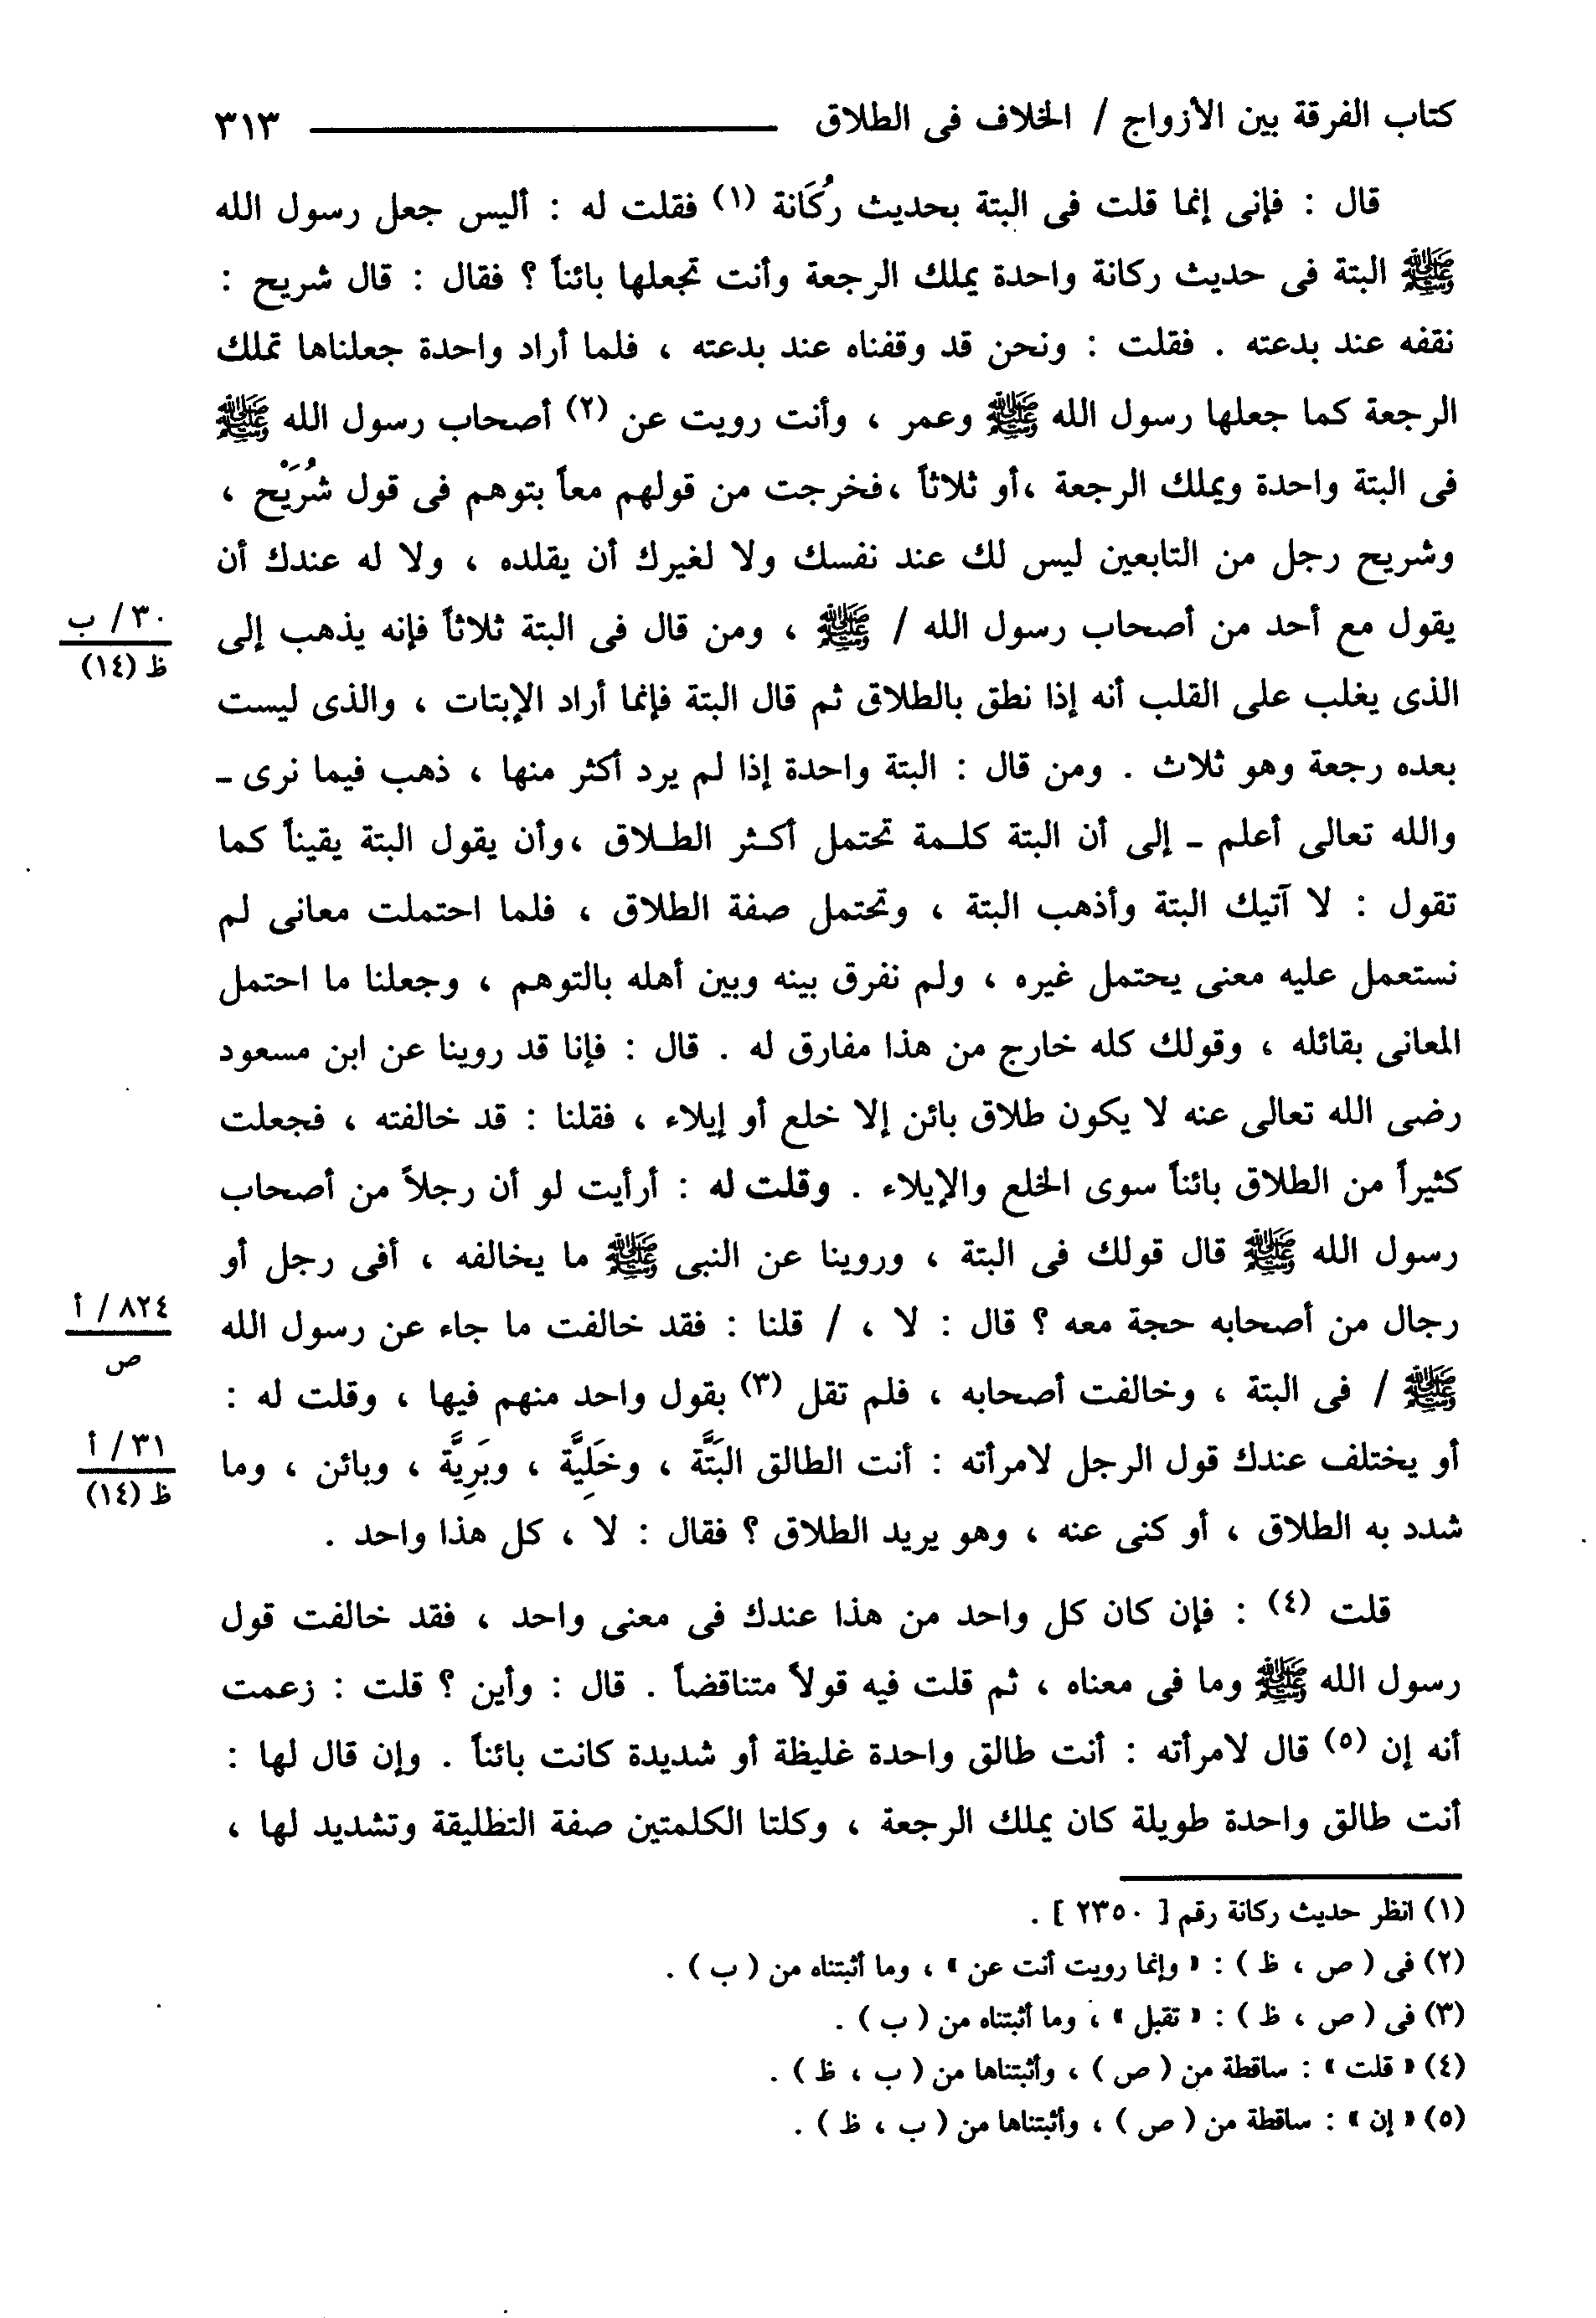 كتاب الفرقة بين الأزواج / الخلاف فى الطلاق ٣١٣
قال : فإنى إنما قلت فى البتة بحديث رُكَانة (١) فقلت له : أليس جعل رسول الله
ﷺ البتة فى حديث ركانة واحدة يملك الرجعة وأنت تجعلها بائناً ؟ فقال : قال شريح :
نقفه عند بدعته . فقلت : ونحن قد وقفناه عند بدعته ، فلما أراد واحدة جعلناها تملك
الرجعة كما جعلها رسول الله ﷺ وعمر ، وأنت رويت عن (٢) أصحاب رسول الله ﷺ
فى البتة واحدة ويملك الرجعة ،أو ثلاثاً ،فخرجت من قولهم معاً بتوهم فى قول شُرَيْح ،
وشريح رجل من التابعين ليس لك عند نفسك ولا لغيرك أن يقلده ، ولا له عندك أن
يقول مع أحد من أصحاب رسول الله / ﷺ ، ومن قال فى البتة ثلاثاً فإنه يذهب إلى
٣٠/ ب
ظ (١٤)
الذى يغلب على القلب أنه إذا نطق بالطلاق ثم قال البتة فإنما أراد الإبتات ، والذى ليست
بعده رجعة وهو ثلاث . ومن قال : البتة واحدة إذا لم يرد أكثر منها ، ذهب فيما نرى -
والله تعالى أعلم - إلى أن البتة كلـمة تحتمل أكـثر الطـلاق ،وأن يقول البتة يقيناً كما
تقول : لا آتيك البتة وأذهب البتة ، وتحتمل صفة الطلاق ، فلما احتملت معانى لم
نستعمل عليه معنى يحتمل غيره ، ولم نفرق بينه وبين أهله بالتوهم ، وجعلنا ما احتمل
المعانى بقائله ، وقولك كله خارج من هذا مفارق له . قال : فإنا قد روينا عن ابن مسعود
رضى الله تعالى عنه لا يكون طلاق بائن إلا خلع أو إيلاء ، فقلنا : قد خالفته ، فجعلت
كثيراً من الطلاق بائناً سوى الخلع والإيلاء . وقلت له : أرأيت لو أن رجلاً من أصحاب
رسول الله ﷺ قال قولك فى البتة ، وروينا عن النبى ﷺ ما يخالفه ، أفى رجل أو
رجال من أصحابه حجة معه ؟ قال : لا ، / قلنا : فقد خالفت ما جاء عن رسول الله
٨٢٤/ أ
ص
ﷺ / فى البتة ، وخالفت أصحابه ، فلم تقل (٣) بقول واحد منهم فيها ، وقلت له :
٣١/ أ
ظ (١٤)
أو يختلف عندك قول الرجل لامرأته : أنت الطالق البَتَّة ، وخَلِيَّة ، وبَرِيَّة ، وبائن ، وما
شدد به الطلاق ، أو كنى عنه ، وهو يريد الطلاق ؟ فقال : لا ، كل هذا واحد .
قلت (٤) : فإن كان كل واحد من هذا عندك فى معنى واحد ، فقد خالفت قول
رسول الله ﷺ وما فى معناه ، ثم قلت فيه قولاً متناقضاً . قال : وأين ؟ قلت : زعمت
أنه إن (٥) قال لامرأته : أنت طالق واحدة غليظة أو شديدة كانت بائناً . وإن قال لها :
أنت طالق واحدة طويلة كان يملك الرجعة ، وكلتا الكلمتين صفة التطليقة وتشديد لها ،
(١) انظر حديث ركانة رقم [ ٢٣٥٠ ] .
(٢) فى ( ص ، ظ ) : « وإنما رويت أنت عن » ، وما أثبتناه من ( ب ) .
(٣) فى ( ص ، ظ ) : « تقبل » ، وما أثبتناه من ( ب ) .
(٤) « قلت » : ساقطة من ( ص ) ، وأثبتناها من ( ب ، ظ ) .
(٥) « إن » : ساقطة من ( ص ) ، وأثبتناها من ( ب ، ظ ) .